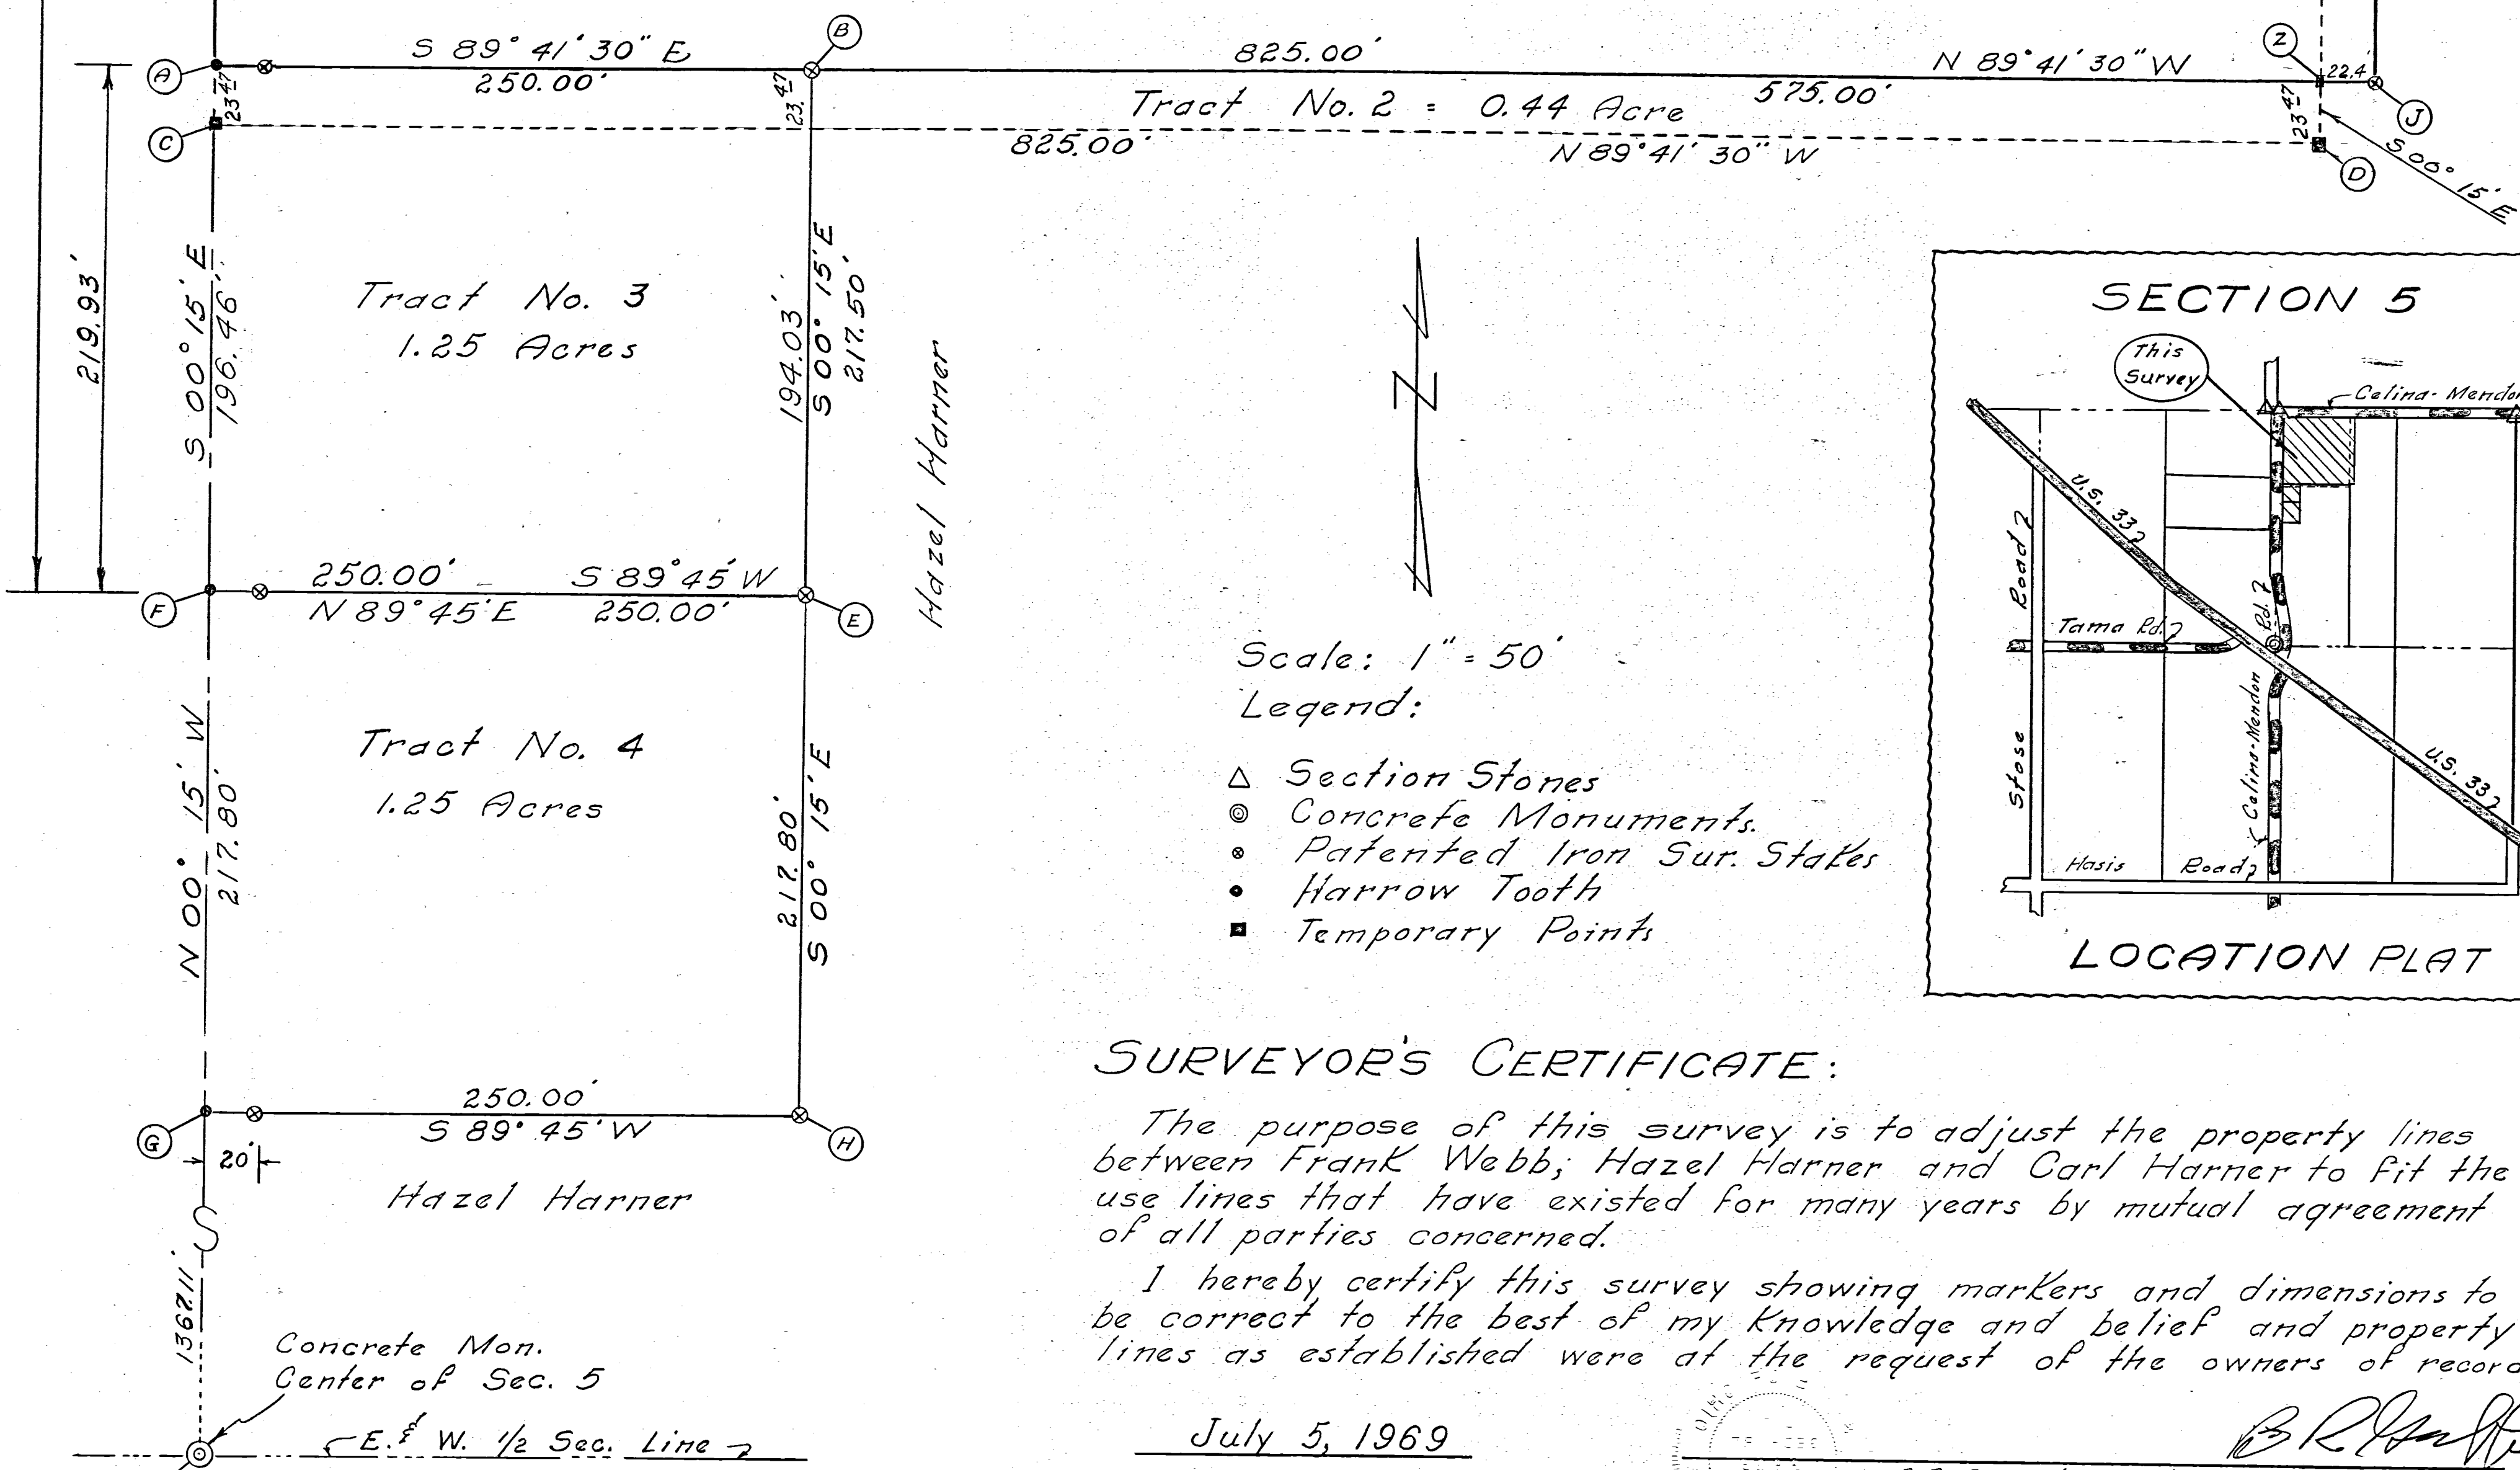 B
S 89° 41' 30" E
825.00'
Z
A
250.00'
N 89° 41' 30" W
22.4'
23.47
23.47
Tract No. 2 = 0.44 Acre
575.00'
23.47
J
C
825.00'
N 89° 41' 30" W
D
S 00° 15' E
219.93'
S 00° 15' E
196.46'
Tract No. 3
1.25 Acres
194.03'
S 00° 15' E
217.50'
Hazel Harner
N
F
250.00'
S 89° 45' W
N 89° 45' E
250.00'
E
N 00° 15' W
217.80'
Tract No. 4
1.25 Acres
217.80'
S 00° 15' E
250.00'
S 89° 45' W
G
H
20'
Hazel Harner
1367.11'
Concrete Mon.
Center of Sec. 5
E. & W. 1/2 Sec. Line
Scale: 1" = 50'
Legend:
Section Stones
Concrete Monuments.
Patented Iron Sur. Stakes
Harrow Tooth
Temporary Points
SECTION 5
This
Survey
Celina-Mendon
U.S. 33
Road
Stose
Tama Rd.
Rd.
Celina-Mendon
U.S. 33
Hasis Road
LOCATION PLAT
SURVEYOR'S CERTIFICATE:
The purpose of this survey is to adjust the property lines
between Frank Webb; Hazel Harner and Carl Harner to fit the
use lines that have existed for many years by mutual agreement
of all parties concerned.
I hereby certify this survey showing markers and dimensions to
be correct to the best of my knowledge and belief and property
lines as established were at the request of the owners of record
July 5, 1969